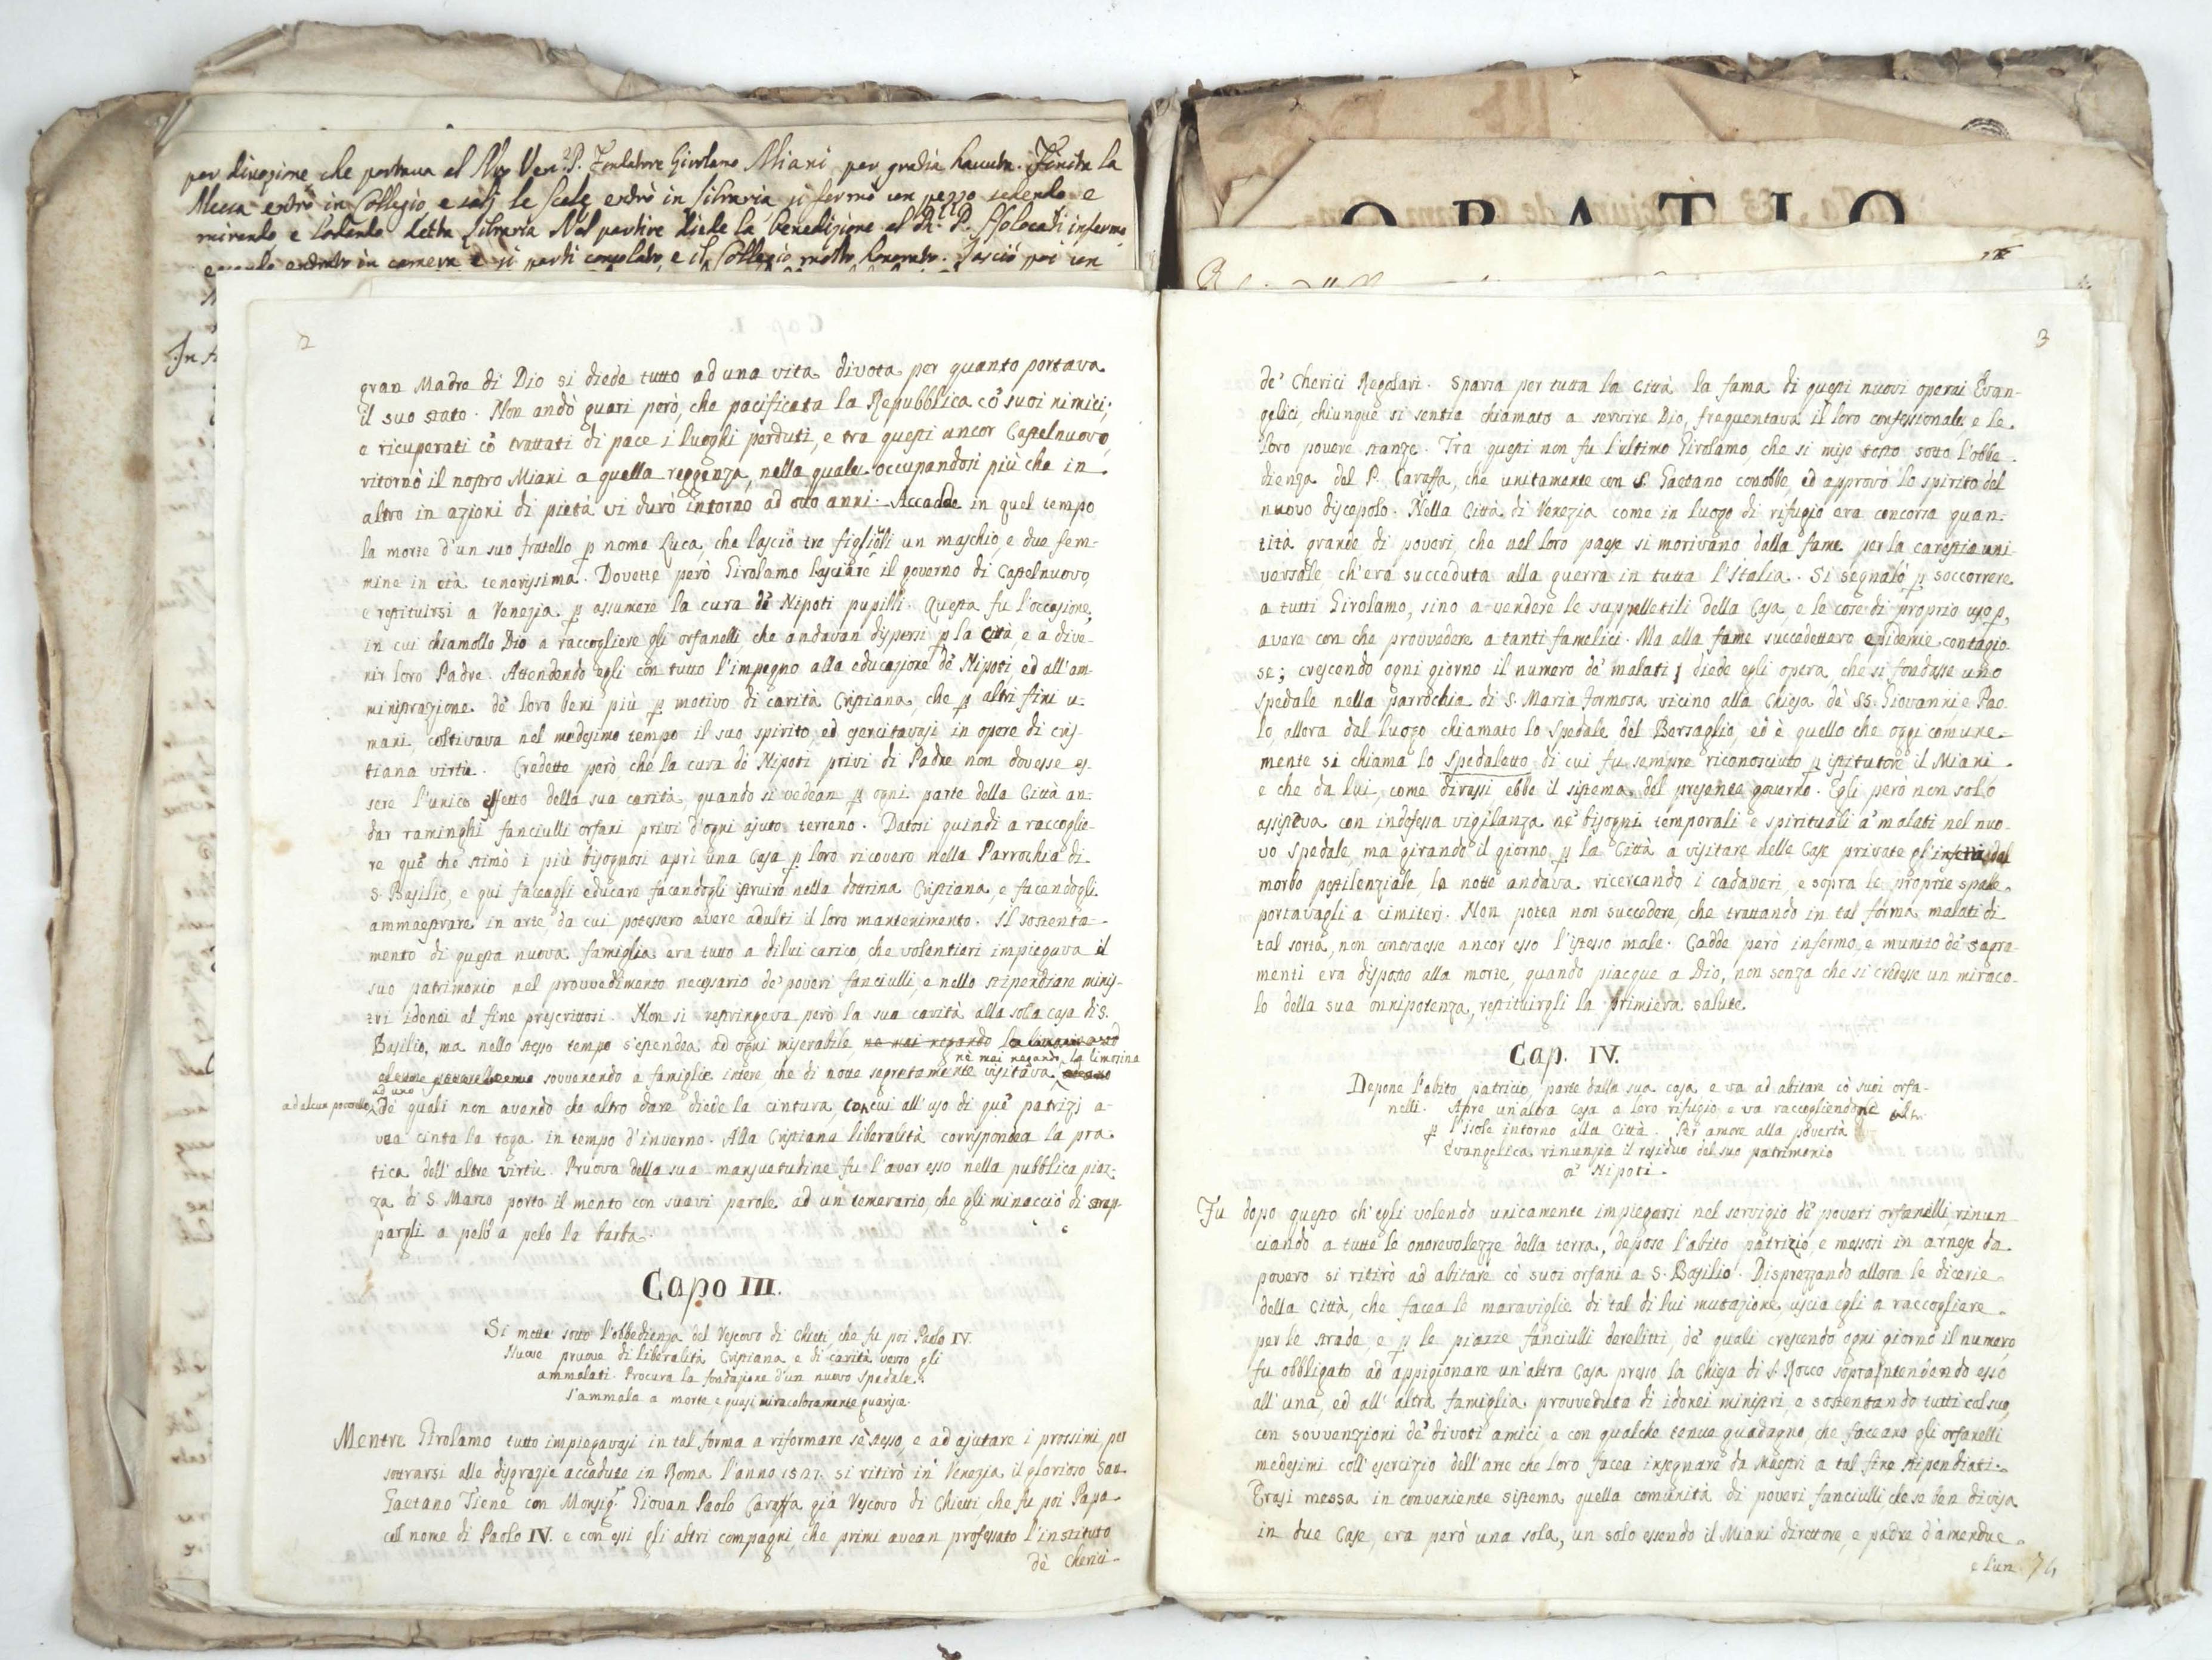 per divozione che portava al Nro Ven. P. Fondatore Girolamo Miani per gratia havuta. Finita la
Messa entrò in Collegio e salì le scale entrò in libraria si fermò un pezzo sedendo e
mirando e lodando detta libraria Nel partire diede la benedizione al infermo
essendo entrato in camera e si partì consolato e il Collegio molto honorato. Lasciò poi un
ORATIO
2
gran Madre di Dio si diede tutto ad una vita divota per quanto portava
il suo stato. Non andò guari però, che pacificata la Repubblica có suoi nimici,
e ricuperati có trattati di pace i luoghi perduti, e tra questi ancor Castelnuovo,
ritornò il nostro Miani a quella reggenza, nella quale occupandosi più che in
altro in azioni di pietà vi durò intorno ad otto anni. Accadde in quel tempo
la morte d'un suo fratello p nome Luca, che lasciò tre figliuoli un maschio, e due fem-
mine in età tenerissima. Dovette però Girolamo lasciare il governo di Castelnuovo,
e restituirsi a Venezia p assumere la cura dé Nipoti pupilli. Questa fu l'occasione,
in cui chiamollo Dio a raccogliere gli orfanelli, che andavan dispersi p la Città, e a dive-
nir loro Padre. Attendendo egli con tutto l'impegno alla educazione dé Nipoti, ed all'am-
ministrazione dé loro beni più p motivo di carità Cristiana, che p altri fini u-
mani coltivava nel medesimo tempo il suo spirito, ed esercitavasi in opere di cris-
tiana virtù. Credette però, che la cura dé Nipoti privi di Padre non dovesse es-
sere l'unico effetto della sua carità, quando si vedean p ogni parte della Città an-
dar raminghi fanciulli orfani privi d'ogni ajuto terreno. Datosi quindi a raccoglie-
re qué che stimò i più bisognosi aprì una Casa p loro ricovero nella Parrochia di
S. Basilio, e qui faceagli educare facendogli istruire nella dottrina Cristiana, e facendogli
ammaestrare in arte da cui potessero avere adulti il loro mantenimento. Il sostenta-
mento di questa nuova famiglia era tutto a di lui carico, che volentieri impiegava il
suo patrimonio nel provvedimento necessario de' poveri fanciulli, e nello stipendiare minis-
tri idonei al fine prescrittosi. Non si restringeva però la sua carità alla sola casa di S.
Basilio, ma nello stesso tempo s'estendea ad ogni miserabile, ne mai negando la limosina ad
nè mai negando la limosina
sovvenendo a famiglie intere, che di notte segretamente visitava,
ad uno
ad alcun poverello
De' quali non avendo che altro dare diede la cintura, con cui all'uso di qué patrizj a-
vea cinta la toga in tempo d'inverno. Alla Cristiana liberalità corrispondea la pra-
tica dell'altre virtù. Pruova della sua mansuetudine fu l'aver esso nella pubblica piaz-
za di S. Marco porto il mento con suavi parole ad un temerario, che gli minacciò di strap-
pargli a pelo a pelo la barba.
Capo III.
Si mette sotto l'obbedienza del Vescovo di Chieti che fu poi Paolo IV.
Nuove pruove di liberalità Cristiana e di carità verso gli
ammalati. Procura la fondazione d'un nuovo spedale.
S'ammala a morte e quasi miracolosamente guarisce.
Mentre Girolamo tutto impiegavasi in tal forma a riformare sè stesso, e ad ajutare i prossimi, per
sottrarsi alle disgrazie accadute in Roma l'anno 1527. si ritirò in Venezia il glorioso San
Gaetano Tiene con Monsigr. Giovan Paolo Caraffa già Vescovo di Chietti, che fu poi Papa
col nome di Paolo IV. e con essi gli altri compagni, che primi avean professato l'instituto
dè Cherici-
3
de' Cherici Regolari. Sparsa per tutta la Città la fama di questi nuovi operai Evan-
gelici, chiunque si sentia chiamato a servire Dio, frequentava il loro confessionale, e le
loro povere stanze. Tra questi non fu l'ultimo Girolamo, che si mise tosto sotto l'obbe-
dienza del P. Caraffa, che unitamente con S. Gaetano conobbe, ed approvò lo spirito del
nuovo discepolo. Nella Città di Venezia come in luogo di rifugio era concorsa quan-
tità grande di poveri, che nel loro paese si morivano dalla fame per la carestia uni-
versale ch'era succeduta alla guerra in tutta l'Italia. Si segnalò p soccorrere
a tutti Girolamo, sino a vendere le suppelletili della Casa, e le cose di proprio uso p
avere con che provvedere a tanti famelici. Ma alla fame succedettero epidemie contagio-
se; crescendo ogni giorno il numero de' malati, diede egli opera, che si fondasse uno
spedale nella parrochia di S. Maria Formosa vicino alla Chiesa de' SS. Giovanni, e Pao-
lo, allora dal luogo chiamato lo Spedale del Bersaglio, ed è quello che oggi comune-
mente si chiama lo Spedaletto di cui fu sempre riconosciuto p istitutore il Miani
e che da lui, come dirassi ebbe il sistema del presente governo. Egli però non solo
assisteva con indefessa vigilanza né bisogni temporali e spirituali a' malati nel nuo-
vo spedale, ma girando il giorno p la Città a visitare nelle Case private gl'infermi dal
morbo pestilenziale, la notte andava ricercando i cadaveri, e sopra le proprie spalle
portavagli a cimiterj. Non potea non succedere, che trattando in tal forma malati di
tal sorta, non contraesse ancor esso l'istesso male. Cadde però infermo, e munito de' sagra-
menti era disposto alla morte, quando piacque a Dio, non senza che si credesse un miraco-
lo della sua onnipotenza, restituirgli la primiera salute.
Cap. IV.
Depone l'abito patricio, parte dalla sua casa, e va ad abitare có suoi orfa-
nelli. Apre un'altra Casa a loro rifugio e va raccogliendone
p l'isole intorno alla Città. Per amore alla povertà
Evangelica rinunzia il residuo del suo patrimonio
a' Nipoti.
Fu dopo questo ch'egli volendo unicamente impiegarsi nel servigio dé poveri orfanelli, rinun-
ciando a tutte le onorevolezze della terra, depose l'abito patrizio, e messosi in arnese da
povero si ritirò ad abitare có suoi orfani a S. Basilio. Disprezzando allora le dicerie
della Città, che facea le maraviglie di tal di lui mutazione, uscia egli a raccogliere
per le strade, e p le piazze fanciulli derelitti, de' quali crescendo ogni giorno il numero
fu obbligato ad appigionare un'altra Casa presso la Chiesa di S. Rocco soprantendendo esso
all'una, ed all'altra famiglia provveduta di idonei ministri, e sostentando tutti col suo,
con sovvenzioni dé divoti amici, e con qualche tenue guadagno, che faceano gli orfanelli
medesimi coll'esercizio dell'arte che loro facea insegnare da Maestri a tal fine stipendiati.
Erasi messa in conveniente sistema quella comunità di poveri fanciulli, che se ben divisa
in due Case, era però una sola, un solo essendo il Miani direttore, e padre d'amendue.
e l'un